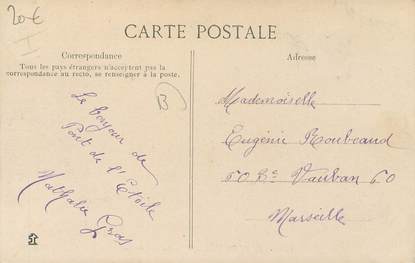 20€
I
CARTE POSTALE
Correspondance
Tous les pays étrangers n'acceptent pas la
correspondance au recto, se renseigner à la poste.
B
Le bonjour de
Pont de l'Etoile
Nathalie Gras
Adresse
Mademoiselle
Eugénie Roubeaud
60 Bd Vauban 60
Marseille